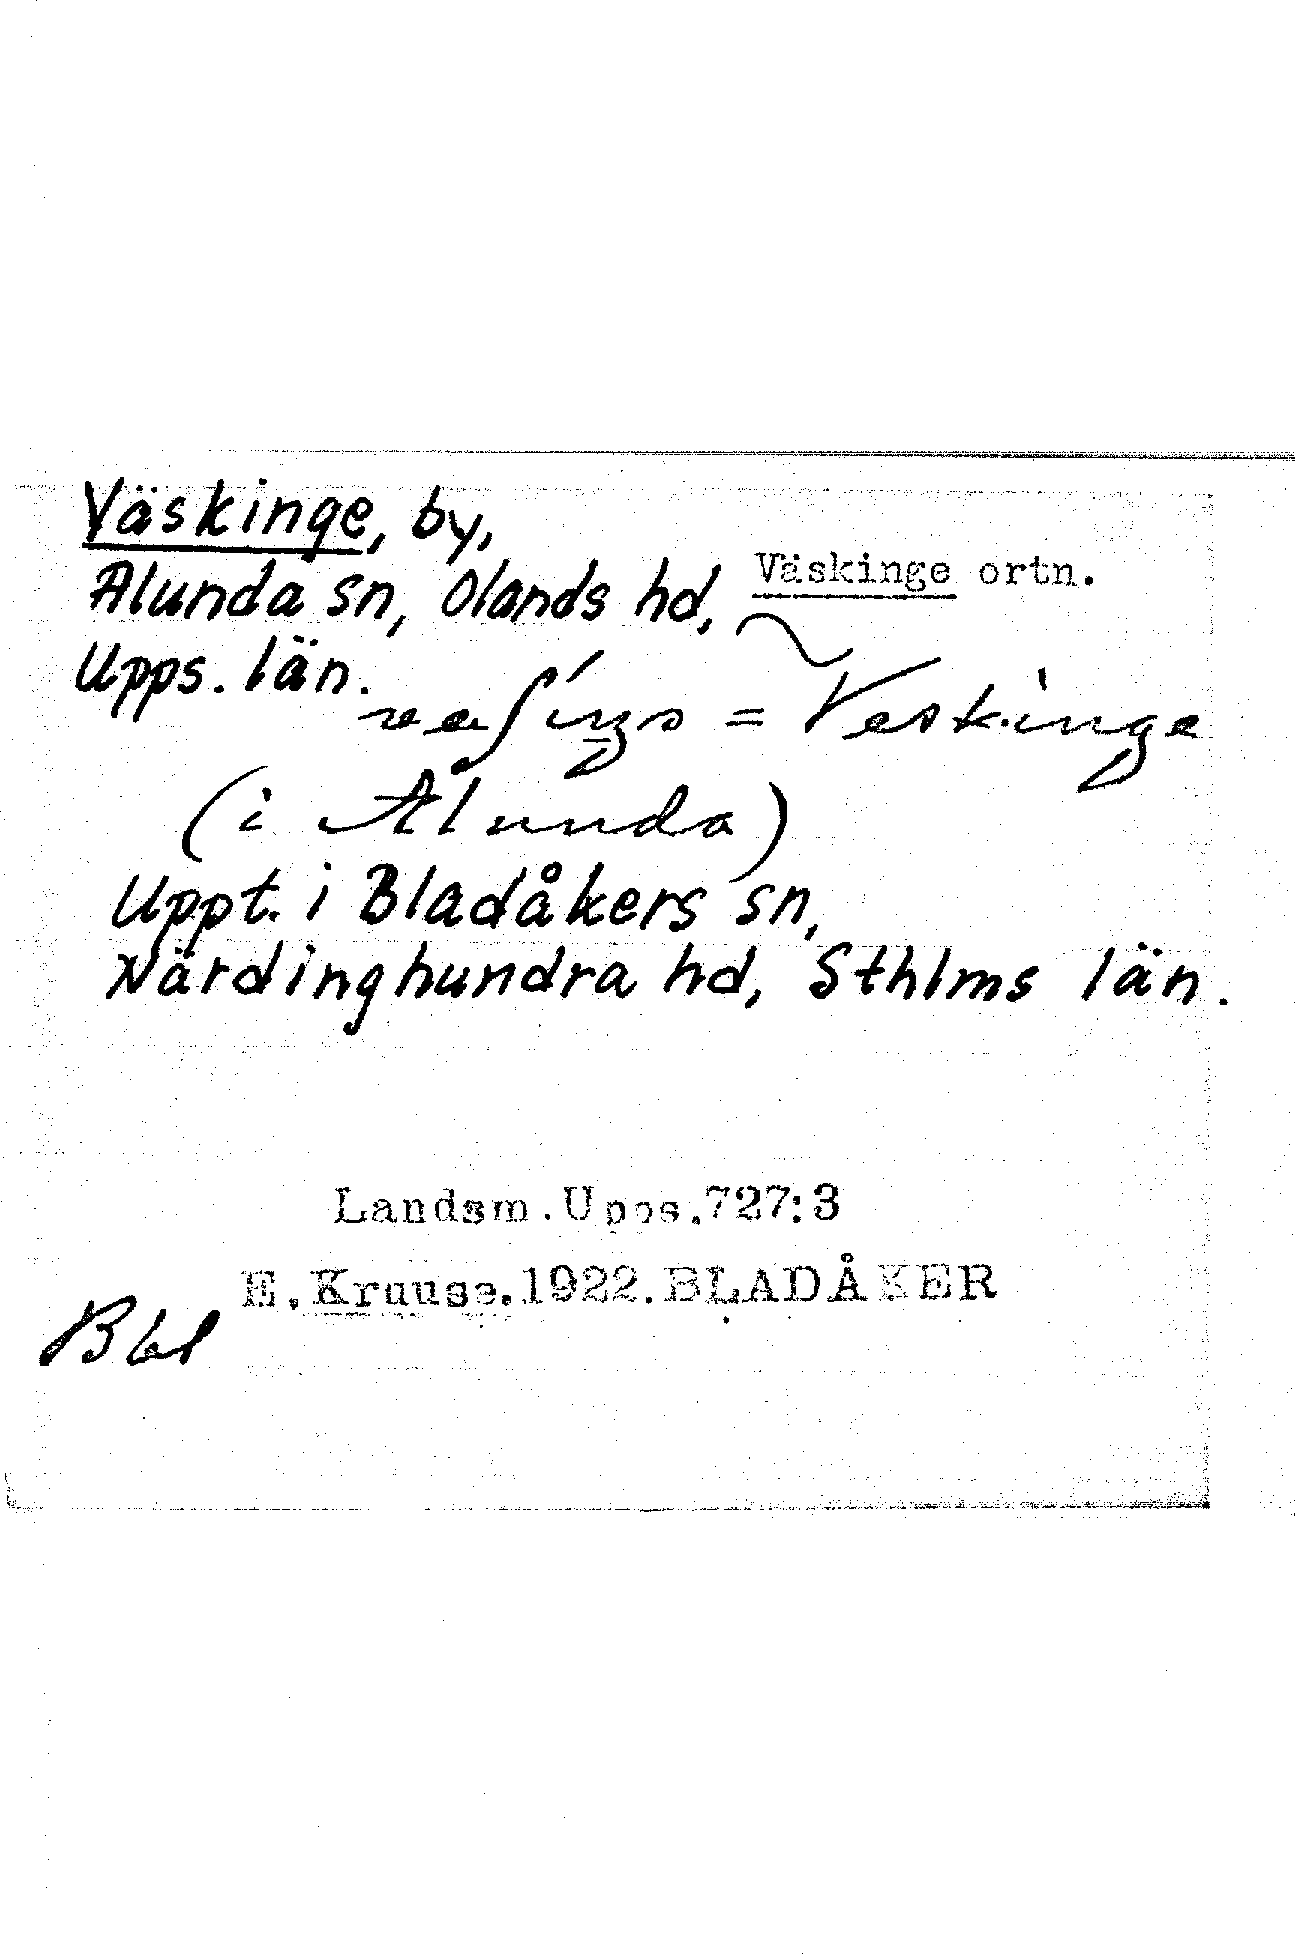 Väskinge, by,
Alunda sn, Olands hd,
Väskinge ortn.
Upps. län.
= Veskinge
(i Alunda)
Uppt. i Bladåkers sn,
Närdinghundra hd, Sthlms län.
Landsm.Upps.727:3
E.Krause.1922.BLADÅKER
Bbl